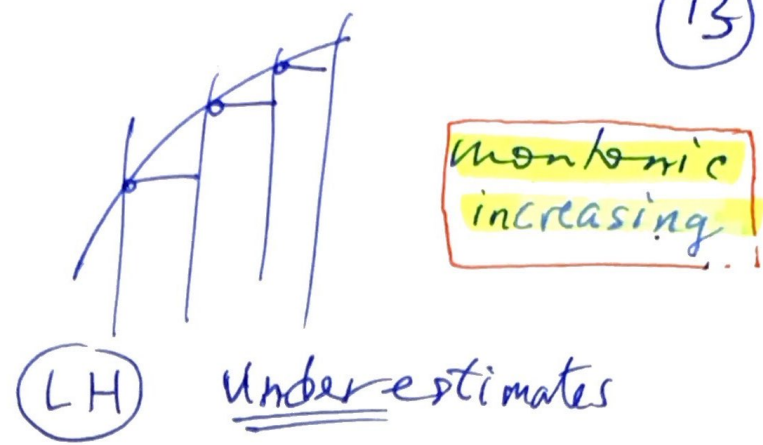 13
montonic
increasing
LH Underestimates